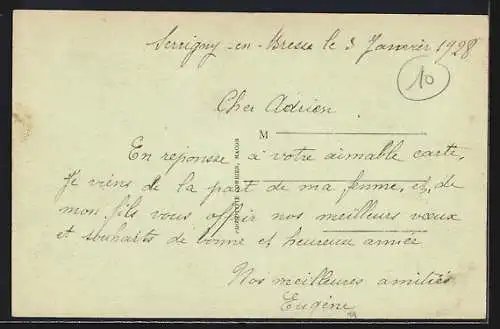 Serrigny-en-Bresse le 3 Janvier 1928
10
Cher Adrien
M
En reponsse à votre aimable carte,
Je viens de la part de ma femme, et, de
mon fils vous offrir nos meilleurs vœux
et souhaits de bonne et heureuse année
Nos meilleures amitiés
Eugène